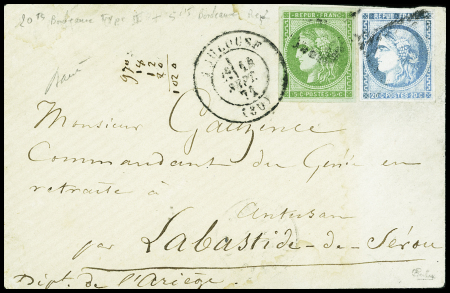 20c Bordeaux Type II + 5c Bordeaux
TOULOUSE
(30)
REPUB. FRANC.
5 C. POSTES 5 C.
REPUB. FRANC.
20 C. POSTES 20 C.
1020
Monsieur Gauzence
Commandant du Génie en
retraite à
Antusan
par Labastide-de-Sérou
Dépt. de l'Ariège.